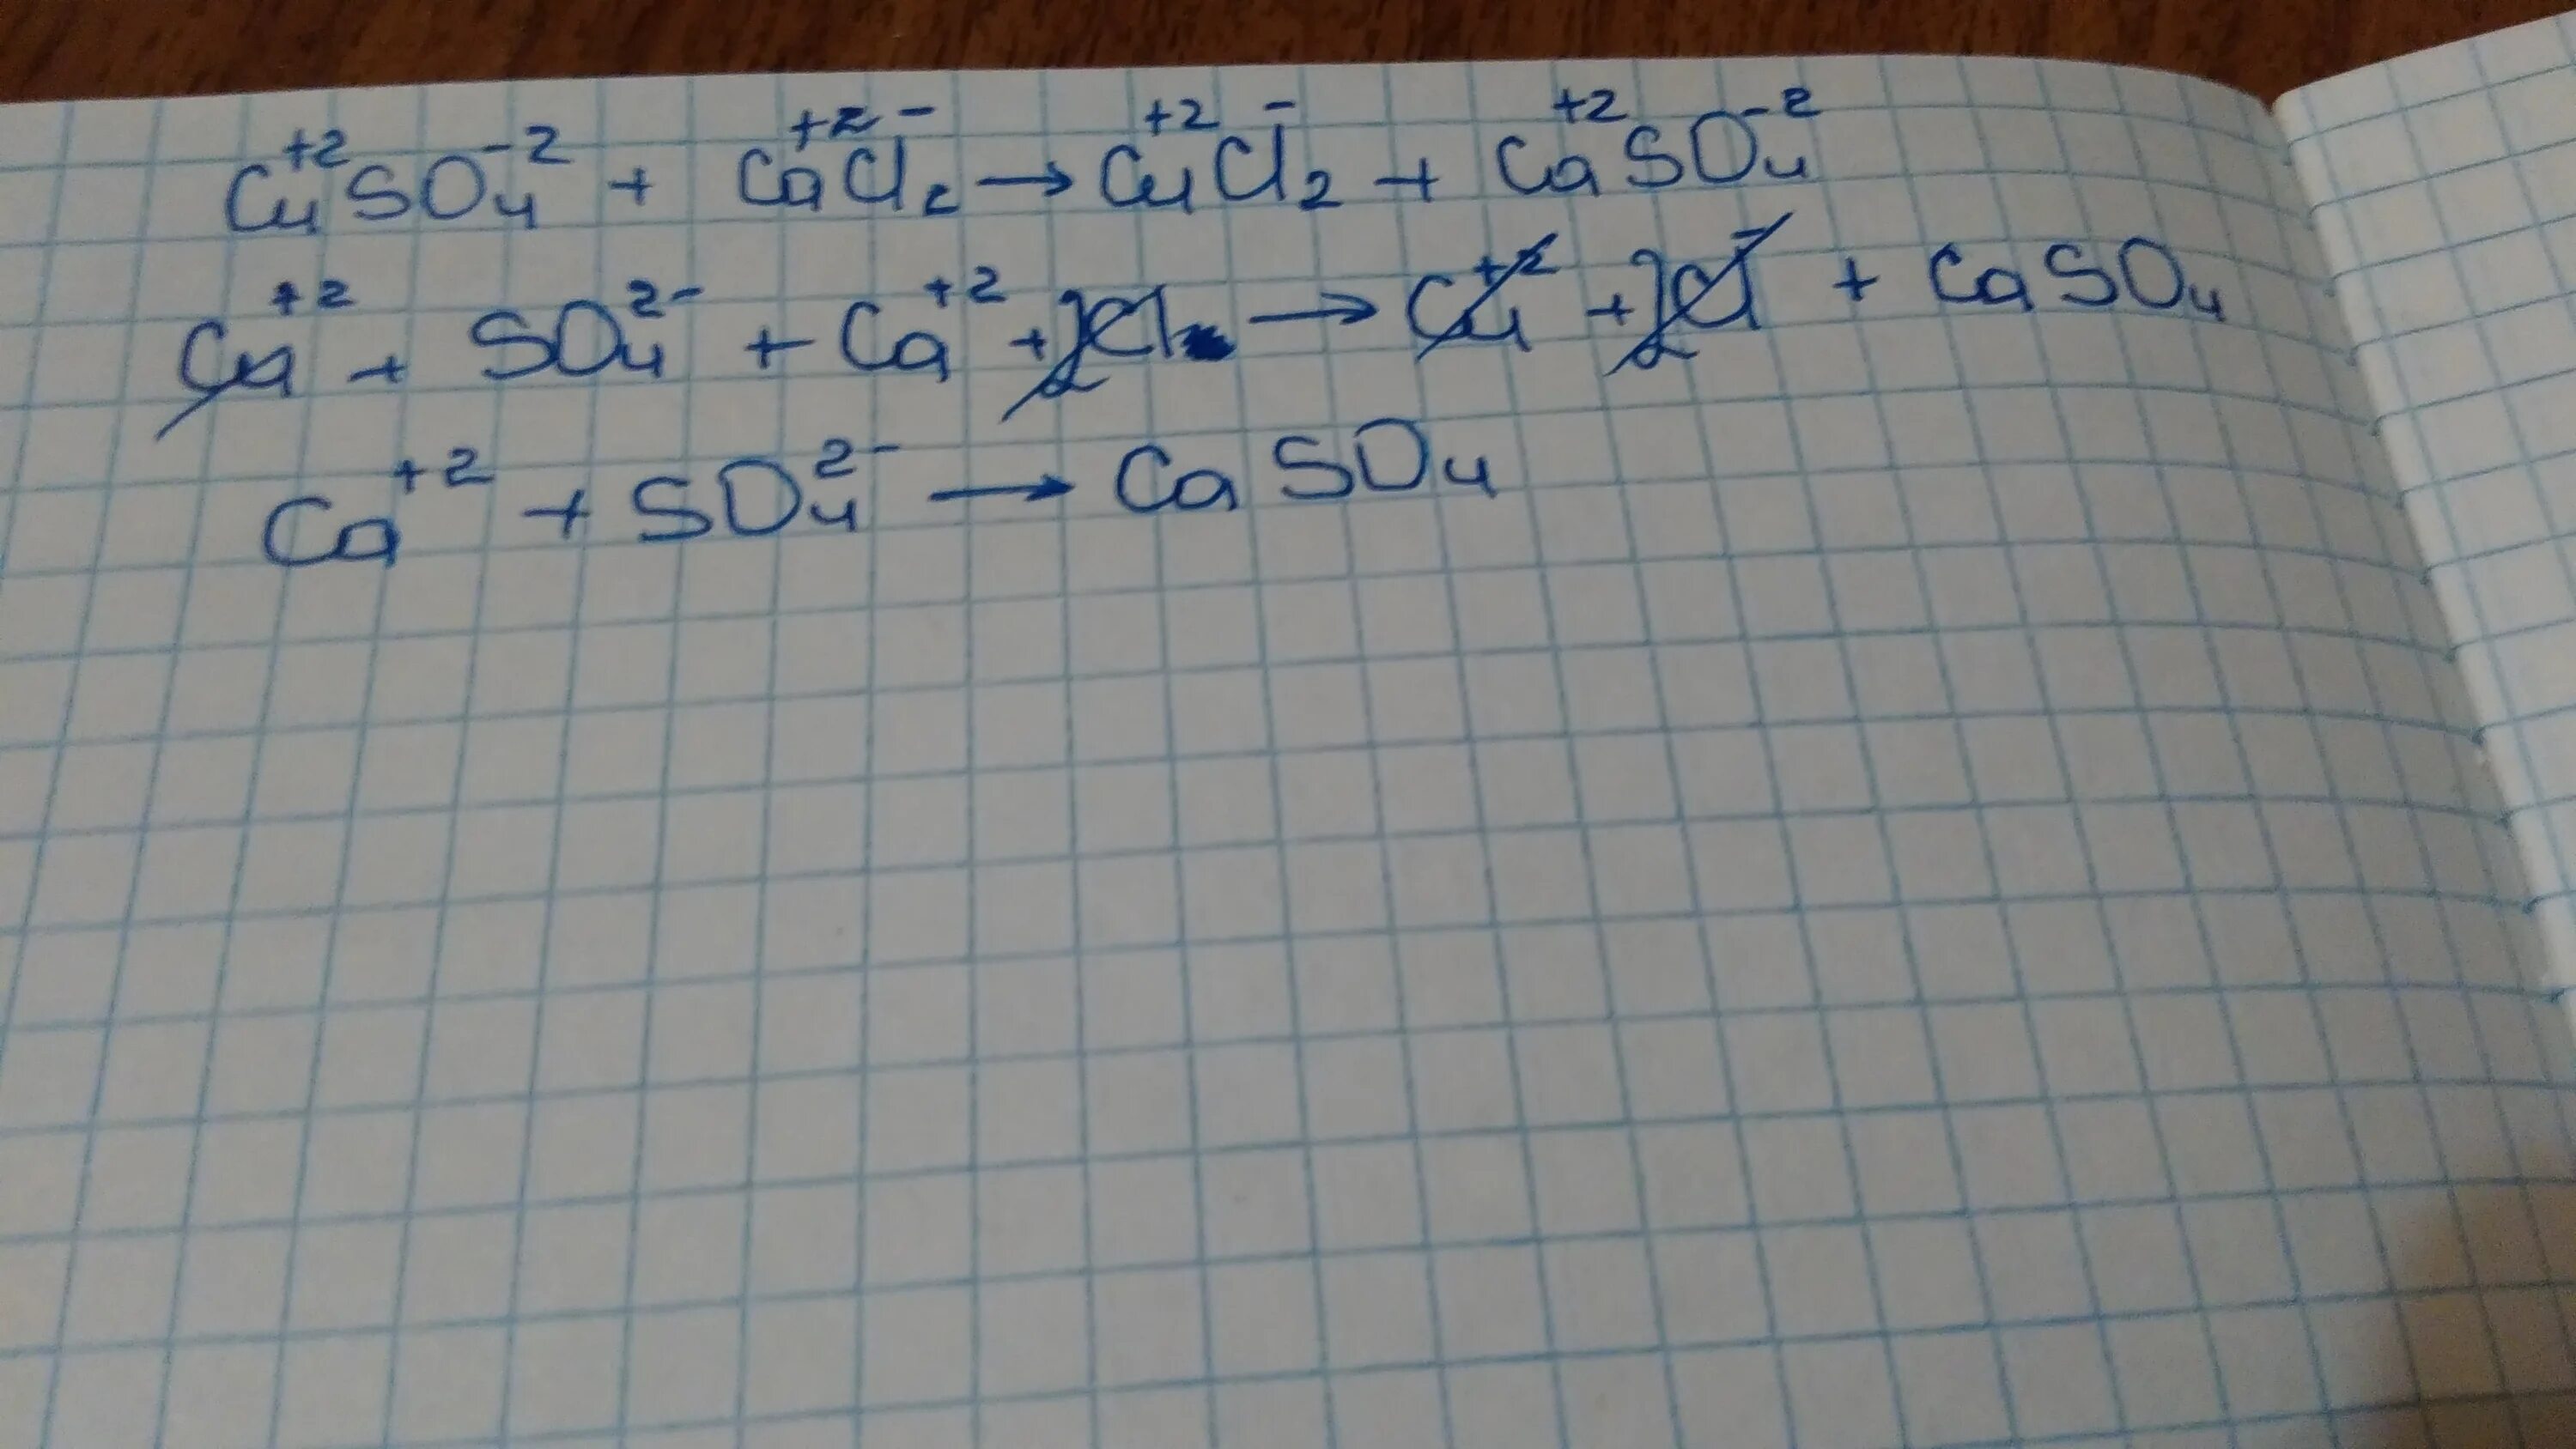 Cu⁺²SO₄⁻² + Ca⁺²Cl⁻₂ → Cu⁺²Cl⁻₂ + Ca⁺²SO₄⁻²
Cu⁺² + SO₄²⁻ + Ca⁺² + 2Cl → Cu⁺² + 2Cl⁻ + CaSO₄
Ca⁺² + SO₄²⁻ → CaSO₄